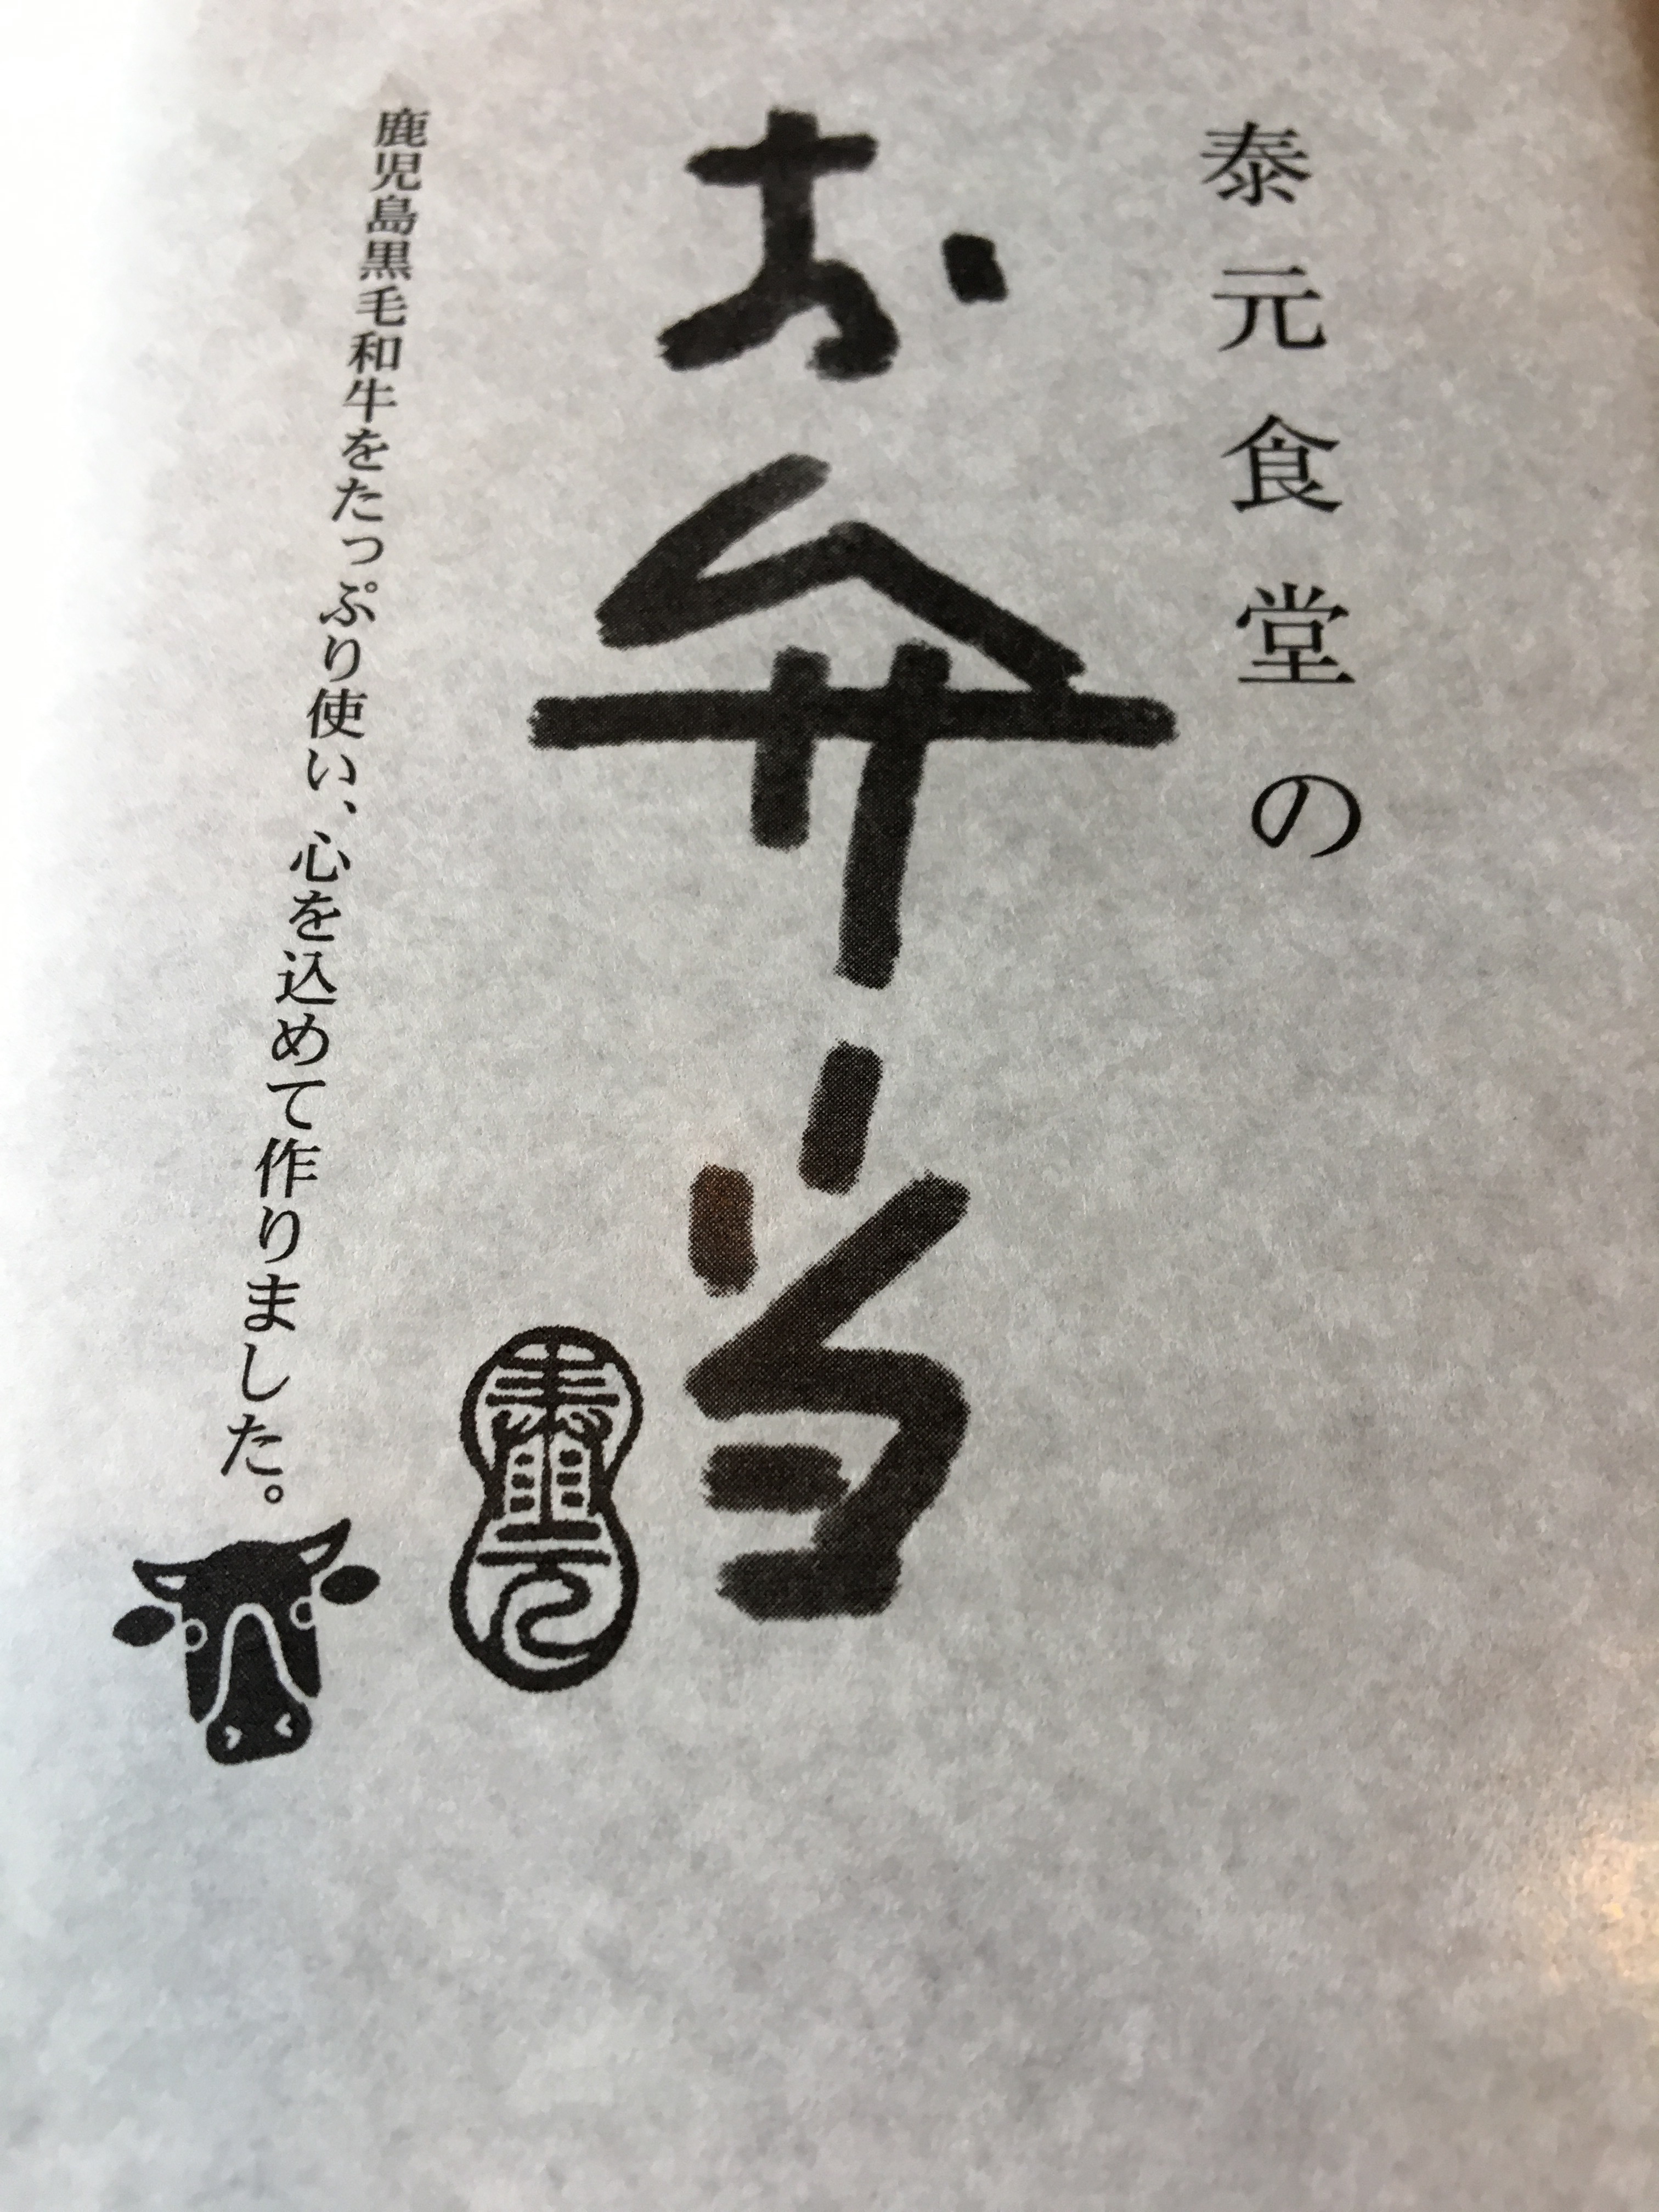 泰元食堂の
お弁当
泰元
鹿児島黒毛和牛をたっぷり使い、心を込めて作りました。